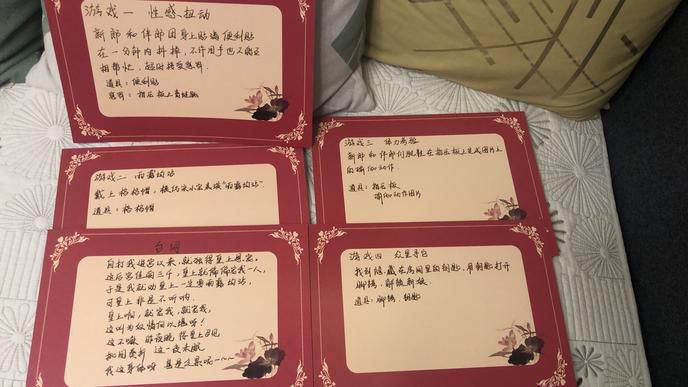 游戏一 性感、扭动
新郎和伴郎团身上贴满便利贴
在一分钟内抖掉,不许用手也不能互
相帮忙,超时接受惩罚.
道具:便利贴
惩罚:指压板上青蛙跳
游戏二 雨露均沾
戴上格格帽,模仿宋小宝表演"雨露均沾".
道具:格格帽
游戏三 体力考验
新郎和伴郎们脱鞋在指压板上完成图片上
的动作.
道具:指压板
动作图片
台词
自打我进宫以来,就独得皇上恩宠.
这后宫佳丽三千,皇上就偏偏宠我一人,
于是我就劝皇上一定要雨露均沾,
可皇上非是不听呐.
皇上啊,就宠我,就宠我,
这叫为奴情何以堪呀!
这不嘛 昨夜晚 得皇上
这一夜未眠
我这身体呀 真是乏累呢~~~
游戏四 众里寻它
找到隐藏在房间里的钥匙,用钥匙打开
脚铐,解救新娘.
道具:脚铐,钥匙